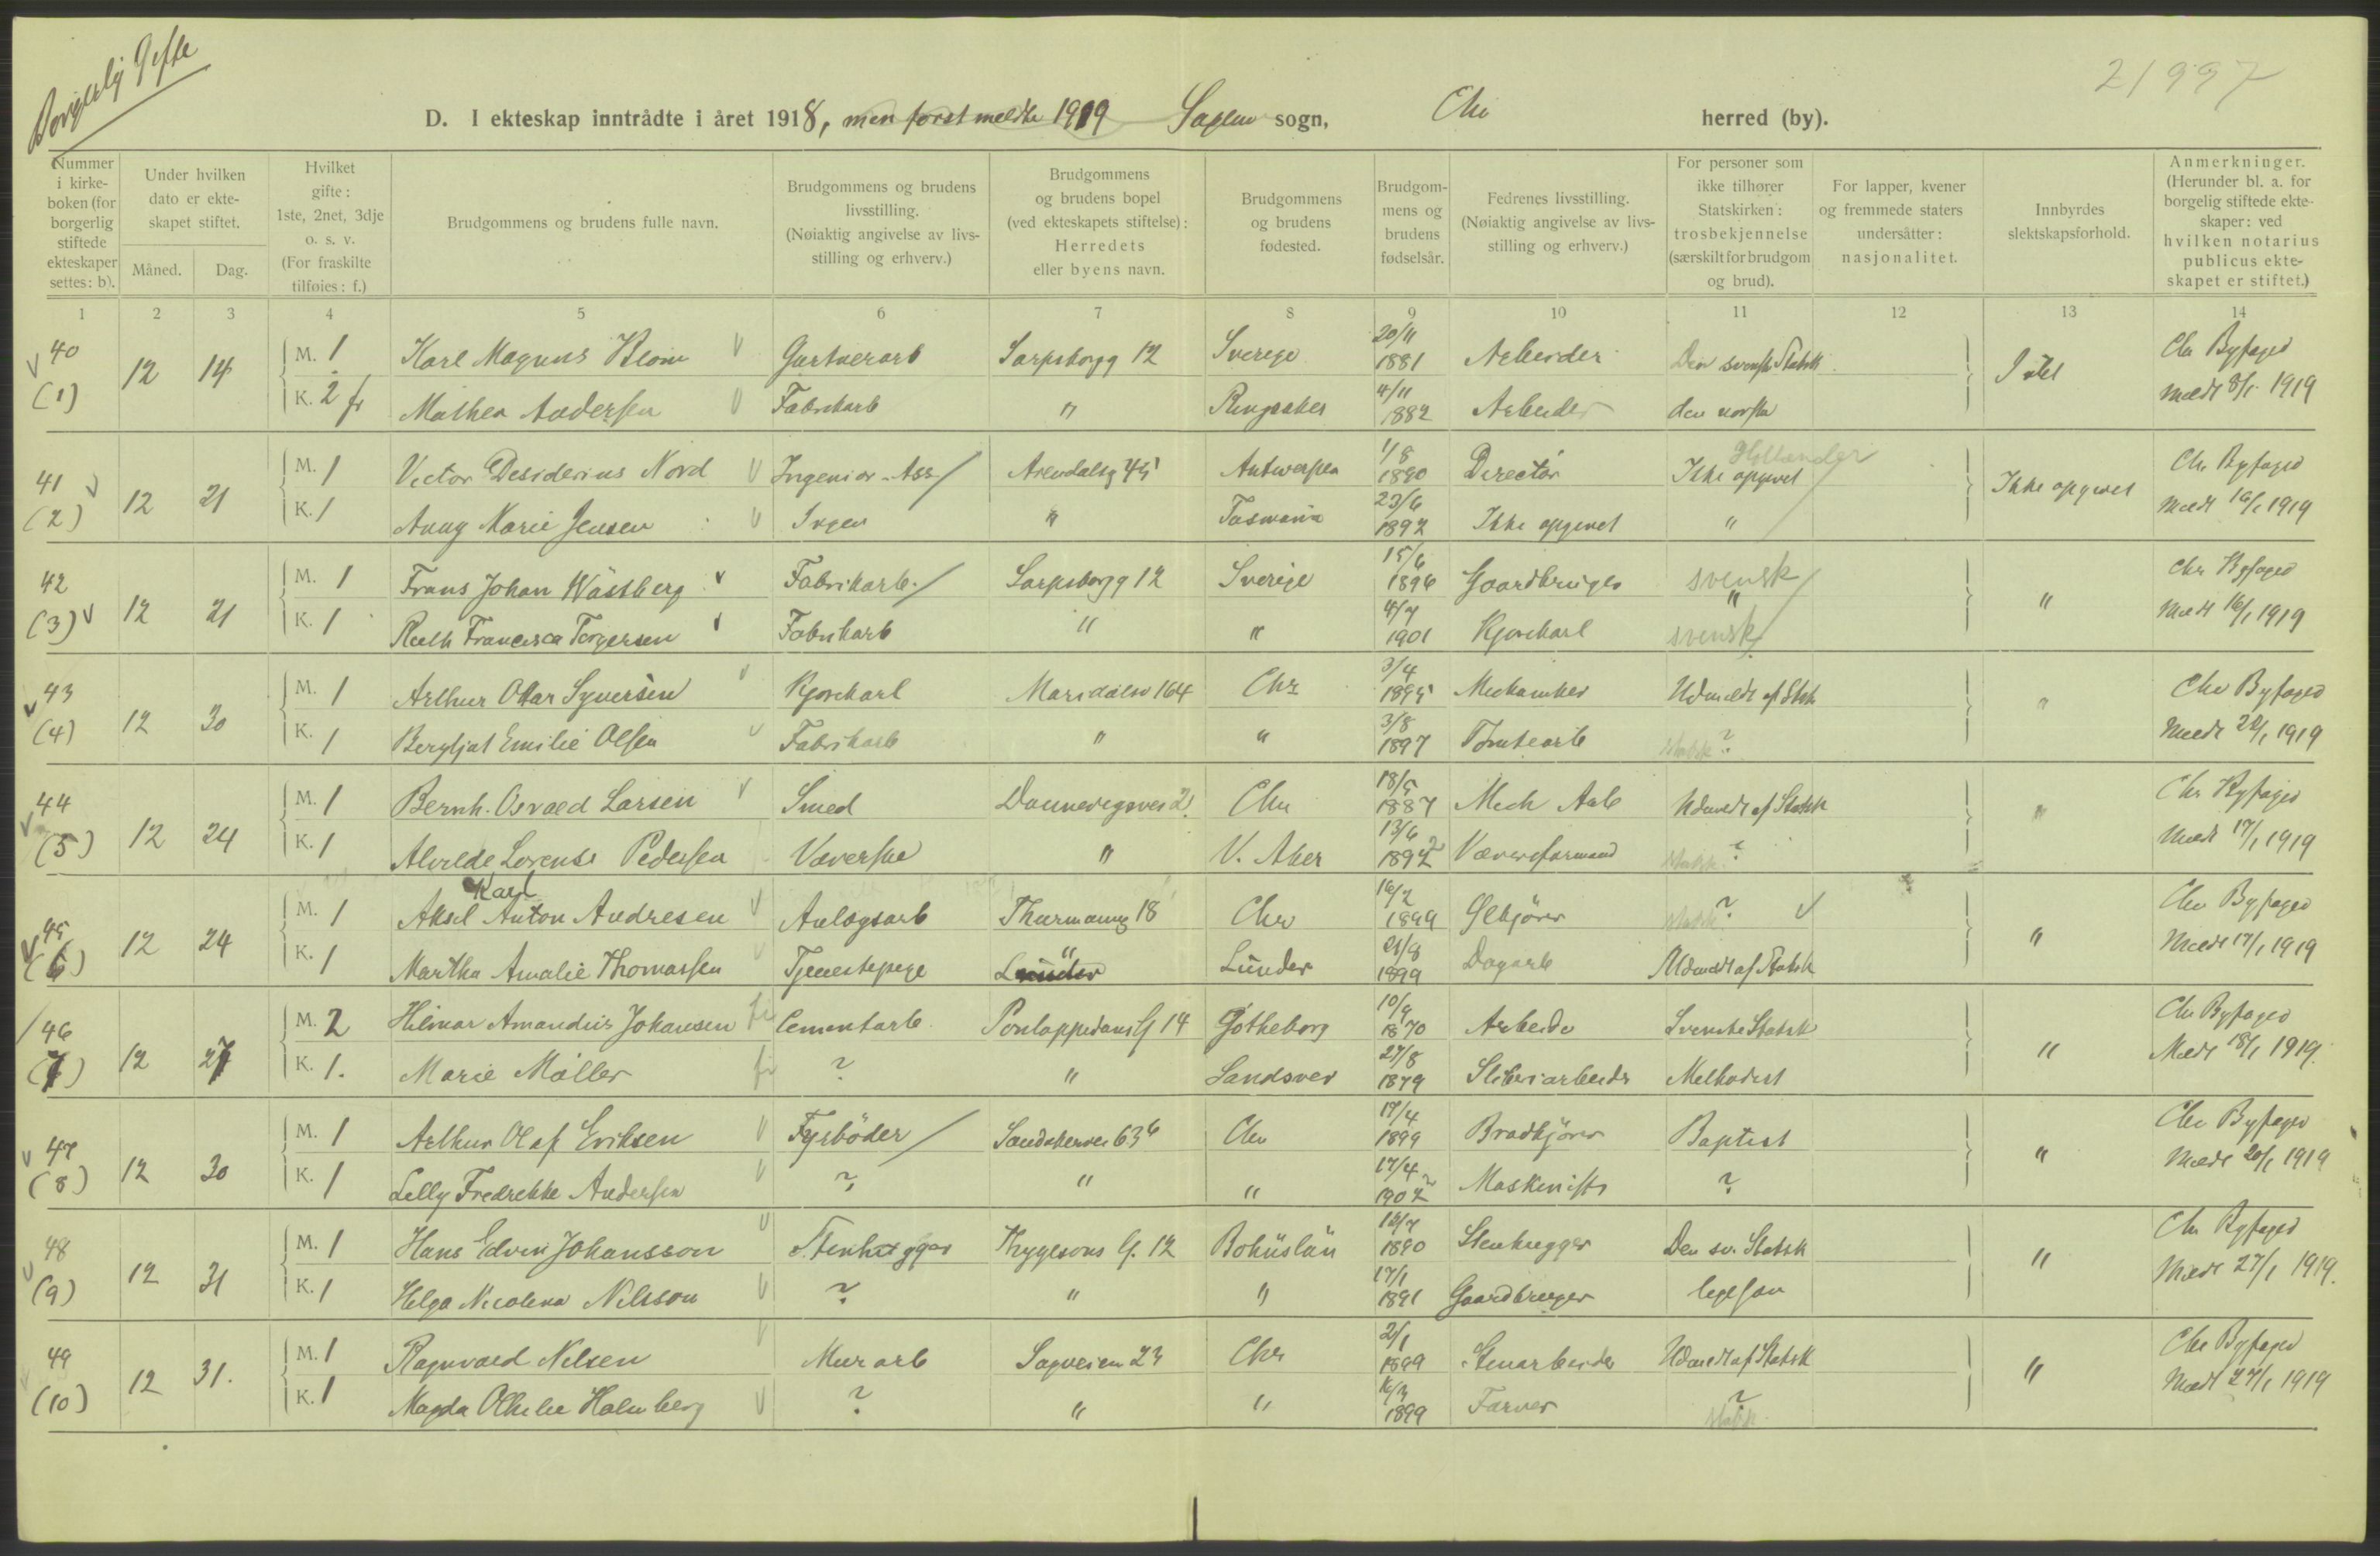 Borgerlig Gifte
21997
D. I ekteskap inntrådte i året 1918, men først meldte 1919 Sagene sogn, Chr herred (by).
Nummer i kirkeboken (for borgerlig stiftede ekteskaper settes: b).
Under hvilken dato er ekteskapet stiftet.
Måned. Dag.
Hvilket gifte: 1ste, 2net, 3dje o. s. v. (For fraskilte tilføies: f.)
Brudgommens og brudens fulle navn.
Brudgommens og brudens livsstilling. (Nøiaktig angivelse av livsstilling og erhverv.)
Brudgommens og brudens bopel (ved ekteskapets stiftelse): Herredets eller byens navn.
Brudgommens og brudens fødested.
Brudgommens og brudens fødselsår.
Fedrenes livsstilling. (Nøiaktig angivelse av livsstilling og erhverv.)
For personer som ikke tilhører Statskirken: trosbekjennelse (særskilt for brudgom og brud).
For lapper, kvener og fremmede staters undersåtter: nasjonalitet.
Innbyrdes slektskapsforhold.
Anmerkninger. (Herunder bl. a. for borgelig stiftede ekteskaper: ved hvilken notarius publicus ekteskapet er stiftet.)
1 2 3 4 5 6 7 8 9 10 11 12 13 14
40 (1) 12 14 M. 1 Karl Magnus Blom Gartnerarb Sarpsborgg 12 Sverige 20/11 1881 Arbeider Den svenske Statsk Chr Byfoged
K. 2 fr Mathea Andersen Fabrikarb " Ringsaker 4/11 1882 Arbeider den norske Meldt 8/1 1919
41 (2) 12 21 M. 1 Victor Desiderius Nord Ingeniør-Ass Arendalsg 45 Antwerpen 1/8 1890 Director Ikke opgivet Hollender Ikke opgivet Chr Byfoged
K. 1 Anny Marie Jensen Ingen " Tasmania 23/6 1892 Ikke opgivet " Meldt 16/1 1919
42 (3) 12 21 M. 1 Frans Johan Wästberg Fabrikarb. Sarpsborgg 12 Sverige 15/6 1896 Gaardbruger svensk " Chr Byfoged
K. 1 Ruth Francisca Torgersen Fabrikarb " " 4/7 1901 Kjørekarl svensk Meldt 16/1 1919
43 (4) 12 30 M. 1 Arthur Ottar Syversen Kjørekarl Maridalsv 164 Chr 3/4 1895 Mechaniker Udmeldt af Statsk " Chr Byfoged
K. 1 Bergljot Emilie Olsen Fabrikarb " " 3/8 1897 Tomtearb statsk? Meldt 22/1 1919
44 (5) 12 24 M. 1 Bernh. Osvald Larsen Smed Dannevigsvei 2 Chr 18/5 1887 Mech Arb Udmeldt af Statsk " Chr Byfoged
K. 1 Alvilde Lorense Pedersen Væverske " V. Aker 13/6 1892 Væveriformand statsk? Meldt 17/1 1919
45 (6) 12 24 M. 1 Aksel Karl Anton Andresen Anlægsarb Thurmannsg 18 Chr 16/2 1899 Ølkjører statsk? " Chr Byfoged
K. 1 Martha Amalie Thomassen Tjenestepige " Lunder 21/8 1899 Dagarb Udmeldt af Statsk Meldt 17/1 1919
46 (7) 12 27 M. 2 Hilmar Amandus Johansen Cementarb. Pontoppidans G 14 Gøtheborg 10/9 1870 Arbeider Svenske Statsk " Chr Byfoged
K. 1. Marie Møller ? " Sandsver 27/8 1879 Sliberiarbeider Methodist Meldt 18/1 1919.
47 (8) 12 30 M. 1 Arthur Olaf Eriksen Fyrbøder Sandakerveien 63 b Chr 17/4 1899 Brødkjører Baptist " Chr Byfoged
K. 1 Lilly Fredrekke Andersen ? " " 17/4 1902 Maskinist ? Meldt 20/1 1919
48 (9) 12 31 M. 1 Hans Edvin Johansson Stenhugger Thygesons G. 12 Bohuslän 13/7 1890 Stenhugger Den sv. Statsk " Chr Byfoged
K. 1 Helga Nicolena Nilsson ? " " 17/1 1891 Gaardbruger ligesaa Meldt 27/1 1919.
49 (10) 12 31. M. 1 Ragnvald Nilsen Murarb Sagveien 23 Chr 2/1 1899 Stenarbeider Udmeldt af Statsk " Chr Byfoged
K. 1 Magda Othelie Holmberg ? " " 16/3 1899 Farver ? statsk. Meldt 27/1 1919